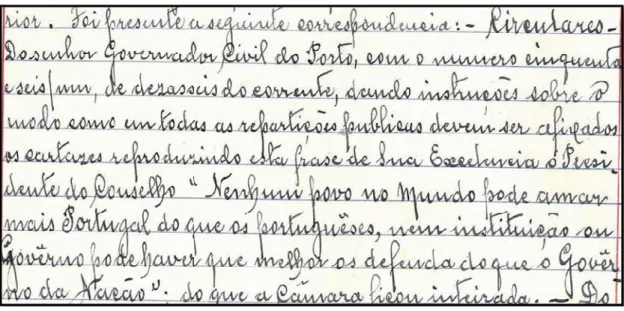 rior. Foi presente a seguinte correspondencia: - Circulares -
Do senhor Governador Civil do Porto, com o numero cinquenta
e seis/um, de dezasseis do corrente, dando instruções sobre o
modo como em todas as repartições publicas devem ser afixados
os cartazes reproduzindo esta frase de Sua Excelencia o Presi-
dente do Conselho "Nenhum povo no Mundo pode amar
mais Portugal do que os portuguêses, nem instituição ou
Govêrno pode haver que melhor os defenda do que o Govêr-
no da Nação"; do que a Câmara ficou inteirada. - Do